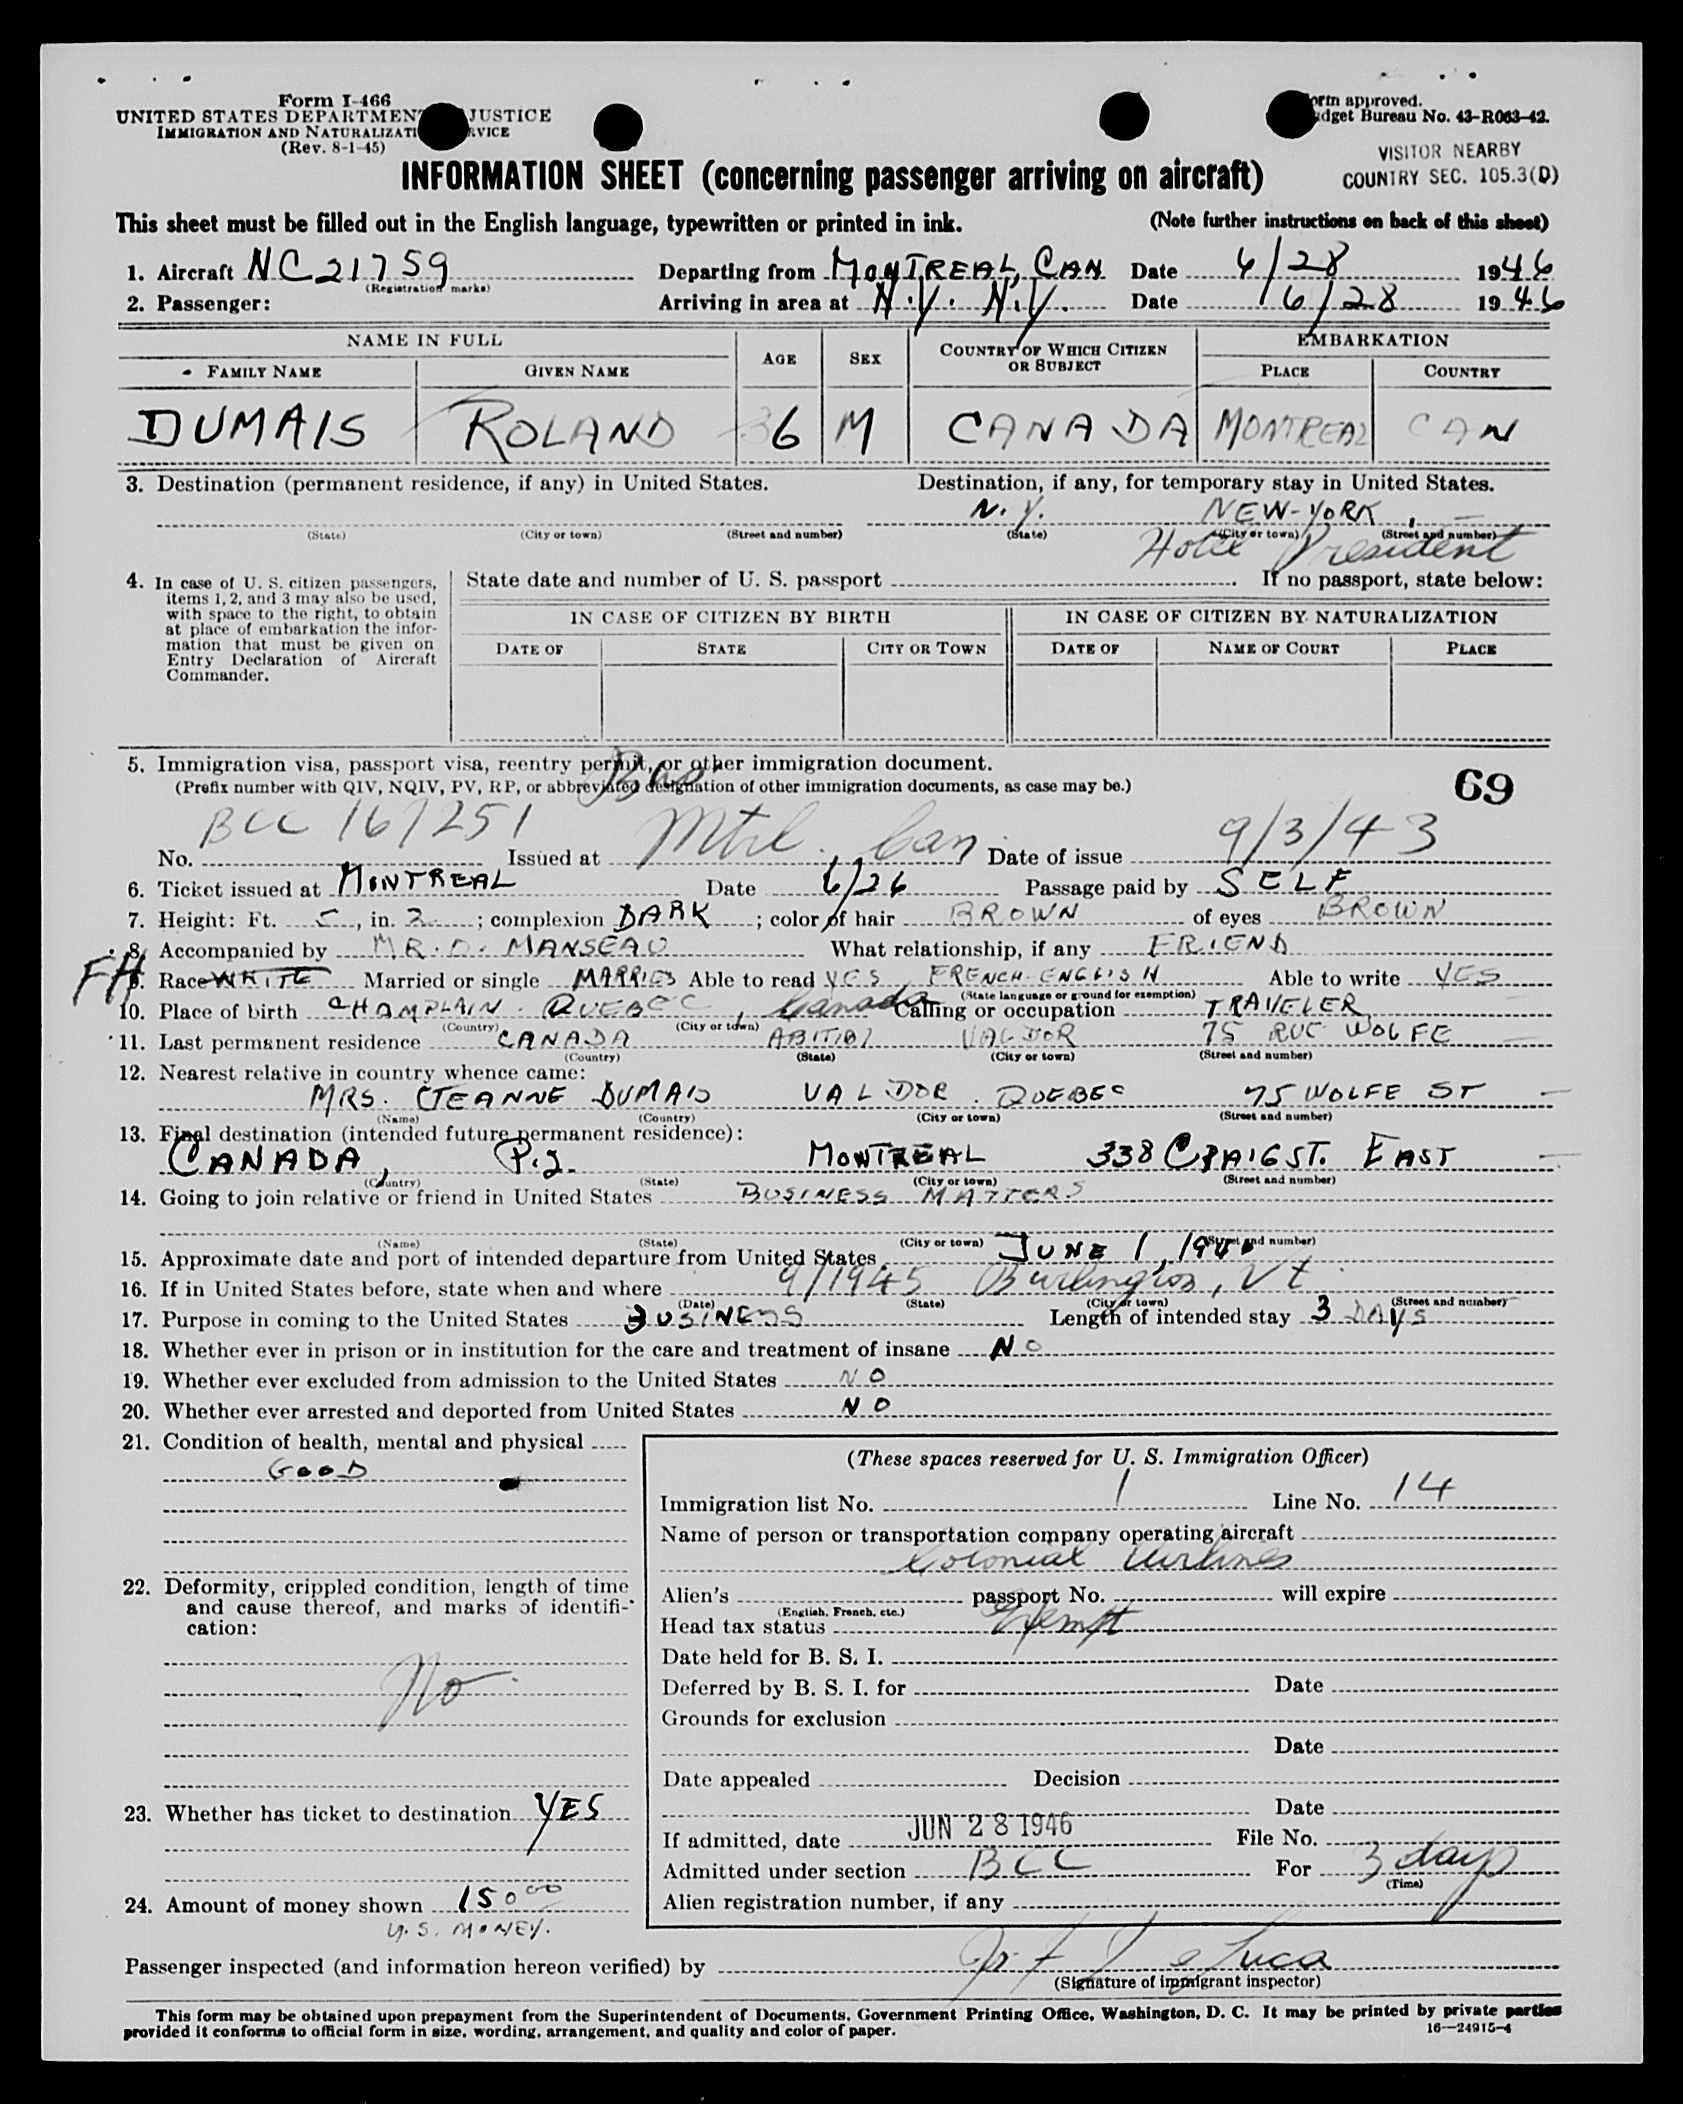 Form I-466
UNITED STATES DEPARTMENT JUSTICE
IMMIGRATION AND NATURALIZATI RVICE
(Rev. 8-1-45)
orm approved.
dget Bureau No. 43-R063-42.
VISITOR NEARBY
COUNTRY SEC. 105.3(D)
INFORMATION SHEET (concerning passenger arriving on aircraft)
This sheet must be filled out in the English language, typewritten or printed in ink. (Note further instructions on back of this sheet)
1. Aircraft NC21759 Departing from MONTREAL, CAN Date 6/28 1946
(Registration marks)
2. Passenger: Arriving in area at N.Y. N.Y. Date 6/28 1946
NAME IN FULL AGE SEX COUNTRY OF WHICH CITIZEN OR SUBJECT EMBARKATION
FAMILY NAME GIVEN NAME PLACE COUNTRY
DUMAIS ROLAND 36 M CANADA MONTREAL CAN
3. Destination (permanent residence, if any) in United States. Destination, if any, for temporary stay in United States.
N.Y. NEW-YORK
(State) (City or town) (Street and number) (State) (City or town) (Street and number)
Hotel President
4. In case of U. S. citizen passengers, items 1, 2, and 3 may also be used, with space to the right, to obtain at place of embarkation the information that must be given on Entry Declaration of Aircraft Commander.
State date and number of U. S. passport . If no passport, state below:
IN CASE OF CITIZEN BY BIRTH IN CASE OF CITIZEN BY NATURALIZATION
DATE OF STATE CITY OR TOWN DATE OF NAME OF COURT PLACE
5. Immigration visa, passport visa, reentry permit, or other immigration document.
(Prefix number with QIV, NQIV, PV, RP, or abbreviated designation of other immigration documents, as case may be.)
69
No. BCC 167251 Issued at Mtrl. Can Date of issue 9/3/43
6. Ticket issued at MONTREAL Date 6/26 Passage paid by SELF
7. Height: Ft. 5, in. 2; complexion DARK; color of hair BROWN of eyes BROWN
8. Accompanied by MR. D. MANSEAU What relationship, if any FRIEND
FH
9. Race WHITE Married or single MARRIED Able to read YES FRENCH-ENGLISH Able to write YES
(State language or ground for exemption)
10. Place of birth CHAMPLAIN. QUEBEC, Canada Calling or occupation TRAVELER
(Country) (City or town)
11. Last permanent residence CANADA ABITIBI VALDOR 75 RUE WOLFE
(Country) (State) (City or town) (Street and number)
12. Nearest relative in country whence came:
MRS. JEANNE DUMAIS VALDOR. QUEBEC 75 WOLFE ST
(Name) (Country) (City or town) (Street and number)
13. Final destination (intended future permanent residence):
CANADA, P.Q. MONTREAL 338 CRAIG ST. EAST
(Country) (State) (City or town) (Street and number)
14. Going to join relative or friend in United States BUSINESS MATTERS
(Name) (State) (City or town) (Street and number)
15. Approximate date and port of intended departure from United States JUNE 1, 1946
16. If in United States before, state when and where 9/1945 Burlington, Vt
(Date) (State) (City or town) (Street and number)
17. Purpose in coming to the United States BUSINESS Length of intended stay 3 DAYS
18. Whether ever in prison or in institution for the care and treatment of insane NO
19. Whether ever excluded from admission to the United States NO
20. Whether ever arrested and deported from United States NO
21. Condition of health, mental and physical
GOOD
22. Deformity, crippled condition, length of time
and cause thereof, and marks of identifi-
cation:
No
23. Whether has ticket to destination YES
24. Amount of money shown 150 00
U.S. MONEY.
(These spaces reserved for U. S. Immigration Officer)
Immigration list No. 1 Line No. 14
Name of person or transportation company operating aircraft
Colonial Airlines
Alien's passport No. will expire
(English, French, etc.)
Head tax status Exempt
Date held for B. S. I.
Deferred by B. S. I. for Date
Grounds for exclusion
Date
Date appealed Decision
Date
If admitted, date JUN 28 1946 File No.
Admitted under section BCC For 3 days
(Time)
Alien registration number, if any
Passenger inspected (and information hereon verified) by De Luca
(Signature of immigrant inspector)
This form may be obtained upon prepayment from the Superintendent of Documents, Government Printing Office, Washington, D. C. It may be printed by private parties
provided it conforms to official form in size, wording, arrangement, and quality and color of paper.
16—24915-4